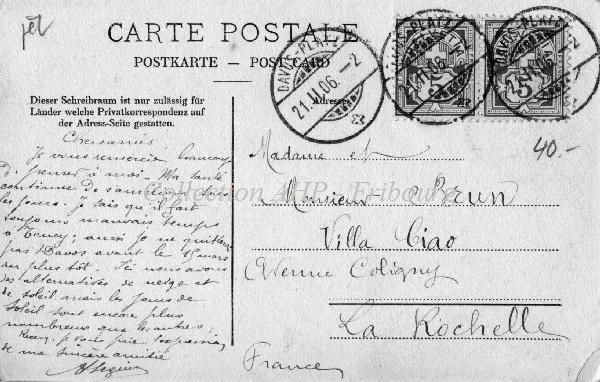 jèt
CARTE POSTALE
POSTKARTE — POST CARD
Dieser Schreibraum ist nur zulässig für
Länder welche Privatkorrespondenz auf
der Adress-Seite gestatten.
Adresse
DAVOS-PLATZ
21.II.06.–2
DAVOS-PLATZ
21.II.06.–2
DAVOS-PLATZ
21.II.06.–2
5
5
40.-
Chers amis,
Je vous remercie beaucoup
de penser à moi. Ma santé
continue de s'améliorer tous
les jours. Je sais qu'il fait
toujours mauvais temps
à ; aussi je ne quitterai
pas Davos avant le mars
au plus tôt. Ici nous avons
des alternatives de neige et
de soleil mais les jours de
soleil sont encore plus
nombreux que les autres.
je vous prie, l'expression
de ma sincère amitié
Madame et
Monsieur Brun
Villa Ciao
Avenue Coligny
La Rochelle
France
Collection AHP - Fribourg